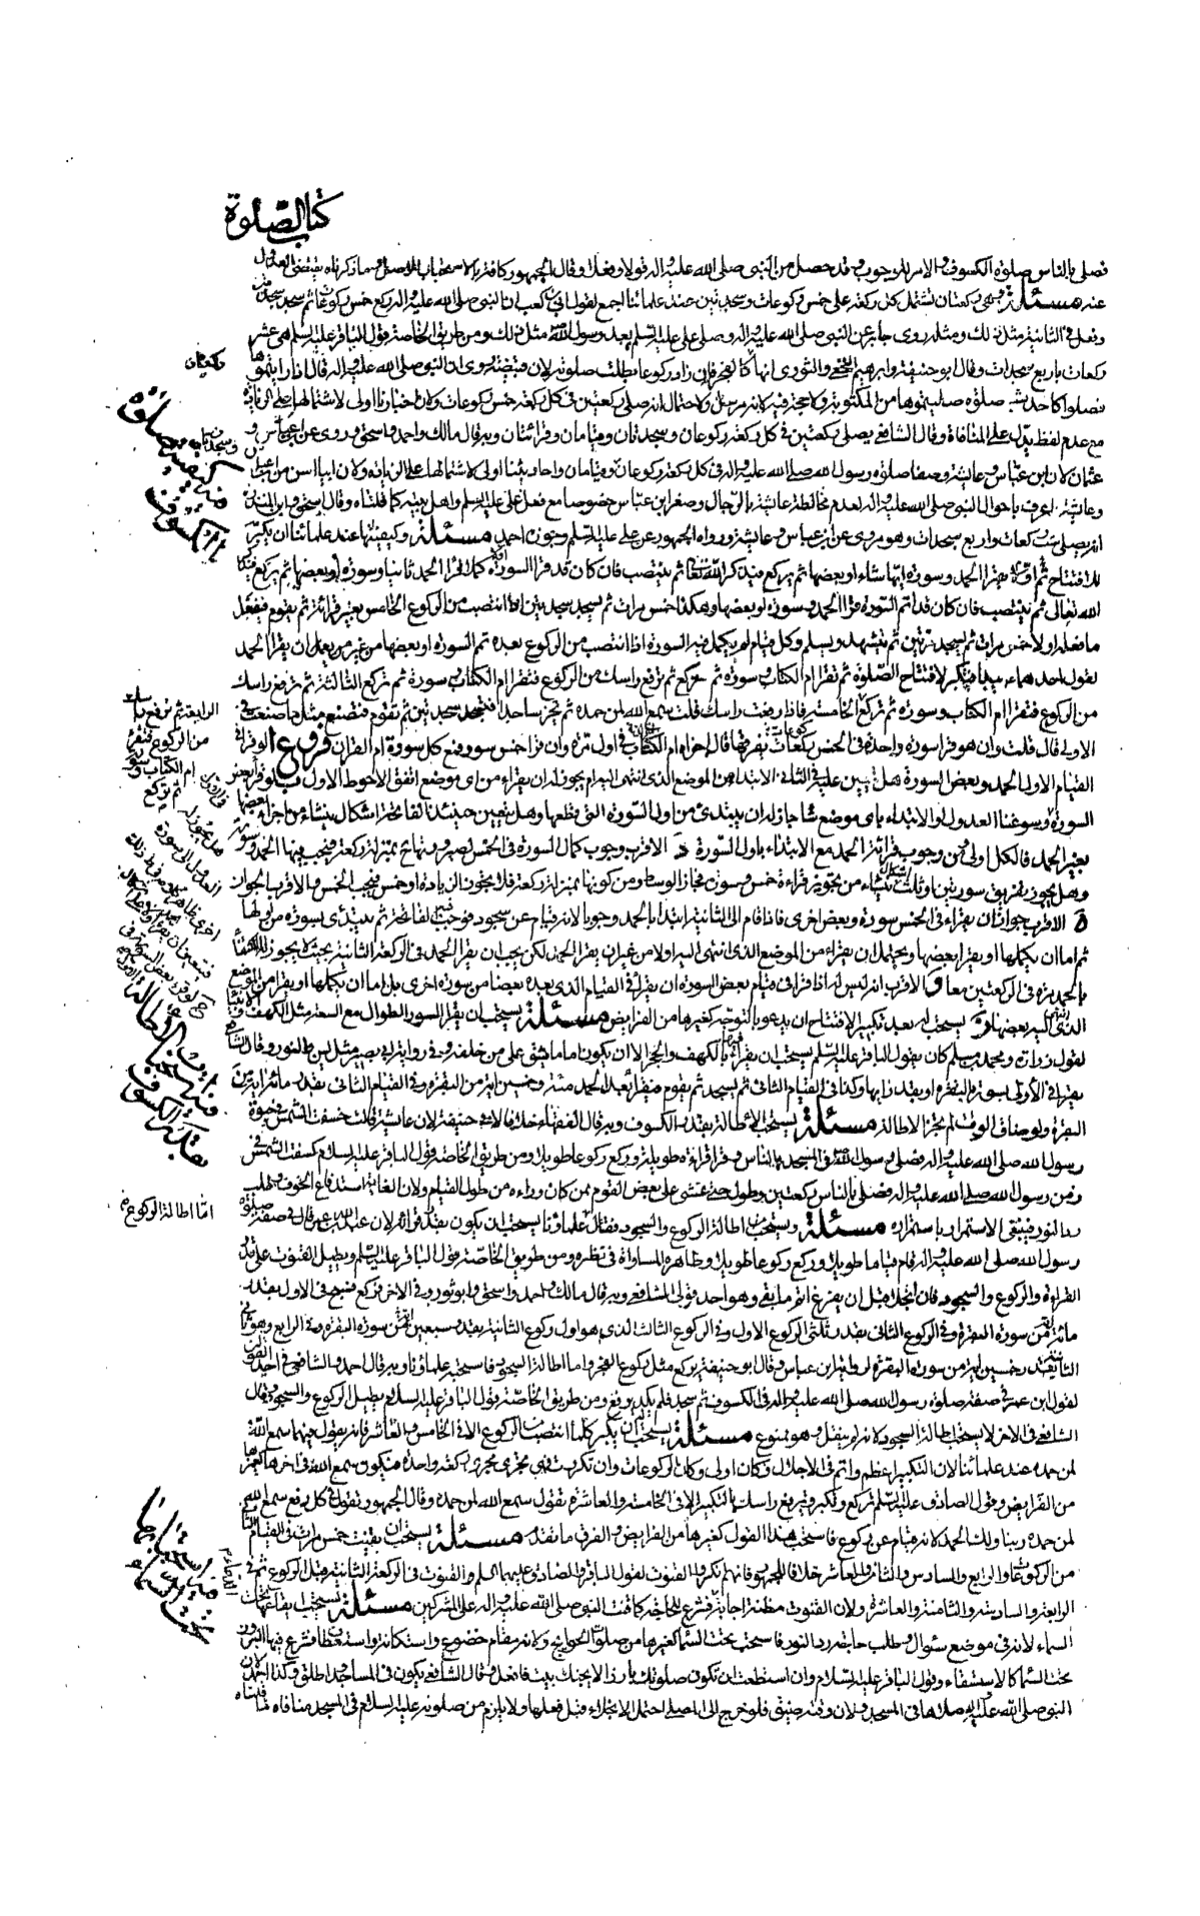 كتاب الصلوة
فصلى بالناس صلوة الكسوف والامر للوجوب وقد حصل من النبي صلى الله عليه واله قولا وفعلا وقال الجمهور كافة بالاستحباب للاصل وما ذكرناه يقتضي العدول
عنه مسئلة وهي ركعتان تشتمل كل ركعة على خمس ركوعات وسجدتين عند علمائنا اجمع لقول ابي بن كعب ان النبي صلى الله عليه واله ركع خمس ركوعات ثم سجد سجدتين
وفعل في الثانية مثل ذلك ومثله روى جابر عن النبي صلى الله عليه واله وصلى علي عليه السلم بعد رسول الله مثل ذلك ومن طريق الخاصة قول الباقر عليه السلم هي عشر
ركعات باربع سجدات وقال ابو حنيفة وابرهيم النخعي والثوري انها كالفجر فان زاد ركوعا بطلت صلوته لان قبيصة روى ان النبي صلى الله عليه واله قال اذا رايتموها
فصلوا كاحدث صلوة صليتموها من المكتوبة ولا حجة فيه لانه مرسل ولاحتمال انه صلى ركعتين في كل ركعة خمس ركوعات ولان اخبارنا اولى لاشتمالها على الزيادة
مع عدم لفظ يدل على المنافاة وقال الشافعي يصلي ركعتين في كل ركعة ركوعان وسجدتان وقيامان وقرائتان وبه قال مالك واحمد واسحق وروي عن ابن عباس و
عثمان لان ابن عباس وعائشة وصفا صلوة رسول الله صلى الله عليه واله في كل ركعة ركوعان وقيامان واحاديثنا اولى لاشتمالها على الزيادة ولان ابيا اسن من ابن عباس
وعائشة اعرف باحوال النبي صلى الله عليه واله لعدم مخالطة عائشة بالرجال وصغر ابن عباس خصوصا مع فعل علي عليه السلم واهل بيته كما قلناه وقال اسحق وابن المنذر
انه يصلي ست ركعات واربع سجدات وهو مروي عن ابن عباس وعائشة ورواه الجمهور عن علي عليه السلم وجوزه احمد مسئلة وكيفيتها عند علمائنا ان يكبر
للافتتاح ثم يقرا الحمد وسورة ايها شاء او بعضها ثم يركع فيذكر الله تعالى ثم ينتصب فان كان قد قرا السورة كملا قرا الحمد ثانيا وسورة او بعضها ثم يركع فيذكر
الله تعالى ثم ينتصب فان كان قد اتم السورة قرا الحمد وسورة او بعضها وهكذا خمس مرات ثم يسجد سجدتين اذا انتصب من الركوع الخامس بغير قرائة ثم يقوم فيفعل
ما فعله اولا خمس مرات ثم يسجد مرتين ثم يتشهد ويسلم وكل قيام لم يكمل فيه السورة اذا انتصب من الركوع بعده تمم السورة او بعضها من غير ان يقرا الحمد
لقول احدهما عليهما السلام تبدا فتكبر لافتتاح الصلوة ثم تقرا ام الكتاب وسورة ثم تركع ثم ترفع راسك من الركوع فتقرا ام الكتاب وسورة ثم تركع الثالثة ثم ترفع راسك
من الركوع فتقرا ام الكتاب وسورة ثم تركع الخامسة فاذا رفعت راسك قلت سمع الله لمن حمده ثم تخر ساجدا فتسجد سجدتين ثم تقوم فتصنع مثل ما صنعت في
الاولى قال قلت وان هو قرا سورة واحدة في الخمس ركعات يفرقها قال اجزاه ام الكتاب في اول مرة وان قرا خمس سور فمع كل سورة ام القران فروع ا لو قرا في
القيام الاول الحمد وبعض السورة هل يتعين عليه في الثاني الابتداء من الموضع الذي انتهى اليه ام يجوز له ان يقراء من اي موضع اتفق الاحوط الاول ب لو قرا بعض
السورة وسوغنا العدول او الابتداء باي موضع شاء جاز له ان يبتدئ من اول السورة التي قطعها وهل يتعين حينئذ الفاتحة اشكال ينشاء من اجزاء بعضها
بغير الحمد فالكل اولى ومن وجوب قرائة الحمد مع الابتداء باول السورة د الاقرب وجوب كمال السورة في الخمس لصيرورتها بمنزلة ركعة فيجب فيها الحمد وسورة
وهل يجوز تفريق سورتين او ثلث اشكال ينشاء من تجويز قراءة خمس وسورة فجاز الوسط ومن كونها بمنزلة ركعة فلا يجوز الزيادة او خمس فيجب الخمس والاقرب الجواز
ه الاقرب جواز ان يقراء في الخمس سورة وبعض اخرى فاذا قام الى الثانية ابتدا بالحمد وجوبا لانه قيام عن سجود فوجب فيه الفاتحة ثم يبتدئ بسورة من اولها
ثم اما ان يكملها او يقرا بعضها ويحتمل ان يقراء من الموضع الذي انتهى اليه اولا من غير ان يقرا الحمد لكن يجب ان يقرا الحمد في الركعة الثانية بحيث لا يجوز له الاكتفاء
بالحمد مرة في الركعتين معا و الاقرب انه ليس له اذا قرا في قيام بعض السورة ان يقرا في القيام الذي بعده بعضا من سورة اخرى بل اما ان يكملها او يقرا من الموضع
الذي انتهى اليه بعضها ز يستحب له بعد تكبيرة الافتتاح ان يدعو بالتوجه كغيرها من الفرايض مسئلة يستحب ان يقرا السور الطوال مع السعة مثل الكهف والانبياء
لقول زرارة ومحمد بن مسلم كان يقول الباقر عليه السلم يستحب ان يقراء بالكهف والحجر الا ان يكون اماما يشق على من خلفه وفي رواية ابي بصير مثل يس والنور وقال الشافعي
يقرا في الاولى بسورة البقرة او بقدرها وكذا في القيام الثاني ثم يسجد ثم يقوم فيقرا بعد الحمد مئة وخمسين اية من البقرة وفي القيام الثاني بقدر مائة اية من
البقرة ولو ضاق الوقت لم يجز الاطالة مسئلة يستحب الاطالة بقدر الكسوف وبه قال الفقهاء خلافا لابي حنيفة لان عائشة قالت خسفت الشمس في حيوة
رسول الله صلى الله عليه واله فصلى رسول الله في المسجد بالناس وقرا قراءة طويلة وركع ركوعا طويلا ومن طريق الخاصة قول الباقر عليه السلام كسفت الشمس في
زمن رسول الله صلى الله عليه واله فصلى بالناس ركعتين وطول حتى غشي على بعض القوم ممن كان وراءه من طول القيام ولان الغاية استدفاع الخوف وطلب
رد النور فينبغي الاستمرار باستمراره مسئلة ويستحب اطالة الركوع والسجود فقال علماؤنا يستحب ان يكون بقدر قرائته لان عبد الله بن عمر قال في صفة صلوة
رسول الله صلى الله عليه واله قام قياما طويلا وركع ركوعا طويلا وظاهره المساواة في نظره ومن طريق الخاصة قول الباقر عليه السلم ويطيل القنوت على قدر
القراءة والركوع والسجود فان انجلى قبل ان يفرغ اتم ما بقي وهو احد قولي الشافعي وبه قال مالك واحمد واسحق وابو ثور وفي الاخر يركع فيسبح في الاول بقدر
مائة اية من سورة البقرة وفي الركوع الثاني بقدر ثلثي الركوع الاول وفي الركوع الثالث الذي هو اول ركوع الثانية بقدر سبعين اية من سورة البقرة وفي الرابع وهو ثاني
الثانية بقدر خمسين اية من سورة البقرة لرواية ابن عباس وقال ابو حنيفة يركع مثل ركوع الفجر واما اطالة السجود فاستحبه علماؤنا وبه قال احمد والشافعي في احد القولين
لقول ابن عمر في صفة صلوة رسول الله صلى الله عليه واله في الكسوف ثم سجد فلم يكد يرفع ومن طريق الخاصة قول الباقر عليه السلام يطيل الركوع والسجود وقال
الشافعي في الاخر لا يستحب اطالة السجود لانه لم ينقل وهو ممنوع مسئلة يستحب ان يكبر كلما انتصب من الركوع الا في الخامس والعاشر فانه يقول فيهما سمع الله
لمن حمده عند علمائنا لان التكبير اعظم واتم في الاجلال فكان اولى وكان الركوعات وان تكررت فهي تجري مجرى ركعة واحدة فيكون سمع الله في اخرها كغيرها
من الفرايض وقول الصادق عليه السلم تركع وتكبر وترفع راسك بالتكبير الا في الخامسة والعاشرة تقول سمع الله لمن حمده وقال الجمهور تقول في كل رفع سمع الله
لمن حمده ربنا ولك الحمد لانه قيام عن ركوع فاستحب هذا القول كغيرها من الفرايض والفرق ما تقدم مسئلة يستحب ان يقنت خمس مرات في القيام الثاني
من الركوعات والرابع والسادس والثامن والعاشر خلافا للجمهور فانهم نكروا القنوت لقول الباقر والصادق عليهما السلم والقنوت في الركعة الثانية قبل الركوع ثم في
الرابعة والسادسة والثامنة والعاشرة ولان القنوت مظنة اجابة فشرع للحاجة كما قنت النبي صلى الله عليه واله على المشركين مسئلة يستحب ايقاعها تحت
السماء لانه في موضع سؤال وطلب حاجة رد النور فاستحب تحت السماء كغيرها من صلوات الحوائج ولانه مقام خضوع واستكانة واستعطاف فشرع فيها البروز
تحت السماء كالاستسقاء وقول الباقر عليه السلام وان استطعت ان تكون صلوتك بارزا لا يجنك بيت فافعل وقال الشافعي يكون في المساجد واطلق وكذا احمد لان
النبي صلى الله عليه واله صلاها في المسجد ولان وقته ضيق فلو خرج الى المصلى احتمل الانجلاء قبل فعلها ولا يلزم من صلوته عليه السلام في المسجد منافاة لما قلناه
ركعتان
وسجدتان
في كيفية صلوة
الكسوف
الرابعة ثم ترفع راسك
من الركوع فتقرا
ام الكتاب وسورة
ثم تركع
هل يجوز له
اما اطالة الركوع